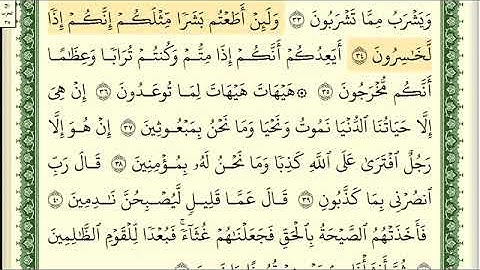 وَيَشۡرَبُ مِمَّا تَشۡرَبُونَ ٣٣ وَلَئِنۡ أَطَعۡتُم بَشَرٗا مِّثۡلَكُمۡ إِنَّكُمۡ إِذٗا
لَّخَٰسِرُونَ ٣٤ أَيَعِدُكُمۡ أَنَّكُمۡ إِذَا مِتُّمۡ وَكُنتُمۡ تُرَابٗا وَعِظَٰمًا
أَنَّكُم مُّخۡرَجُونَ ٣٥ ۞ هَيۡهَاتَ هَيۡهَاتَ لِمَا تُوعَدُونَ ٣٦ إِنۡ هِيَ
إِلَّا حَيَاتُنَا ٱلدُّنۡيَا نَمُوتُ وَنَحۡيَا وَمَا نَحۡنُ بِمَبۡعُوثِينَ ٣٧ إِنۡ هُوَ إِلَّا
رَجُلٌ ٱفۡتَرَىٰ عَلَى ٱللَّهِ كَذِبٗا وَمَا نَحۡنُ لَهُۥ بِمُؤۡمِنِينَ ٣٨ قَالَ رَبِّ
ٱنصُرۡنِي بِمَا كَذَّبُونِ ٣٩ قَالَ عَمَّا قَلِيلٖ لَّيُصۡبِحُنَّ نَٰدِمِينَ ٤٠
فَأَخَذَتۡهُمُ ٱلصَّيۡحَةُ بِٱلۡحَقِّ فَجَعَلۡنَٰهُمۡ غُثَآءٗۚ فَبُعۡدٗا لِّلۡقَوۡمِ ٱلظَّٰلِمِينَ